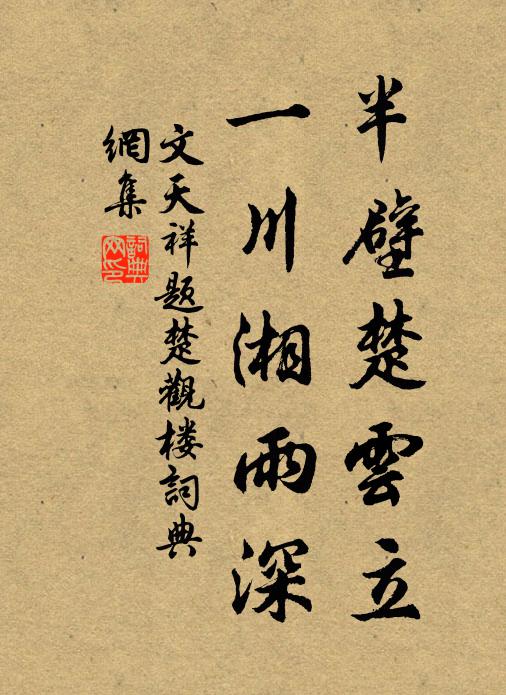 半壁楚雲立
一川湘雨深
文天祥題楚觀楼詞典
網集
詞典网印